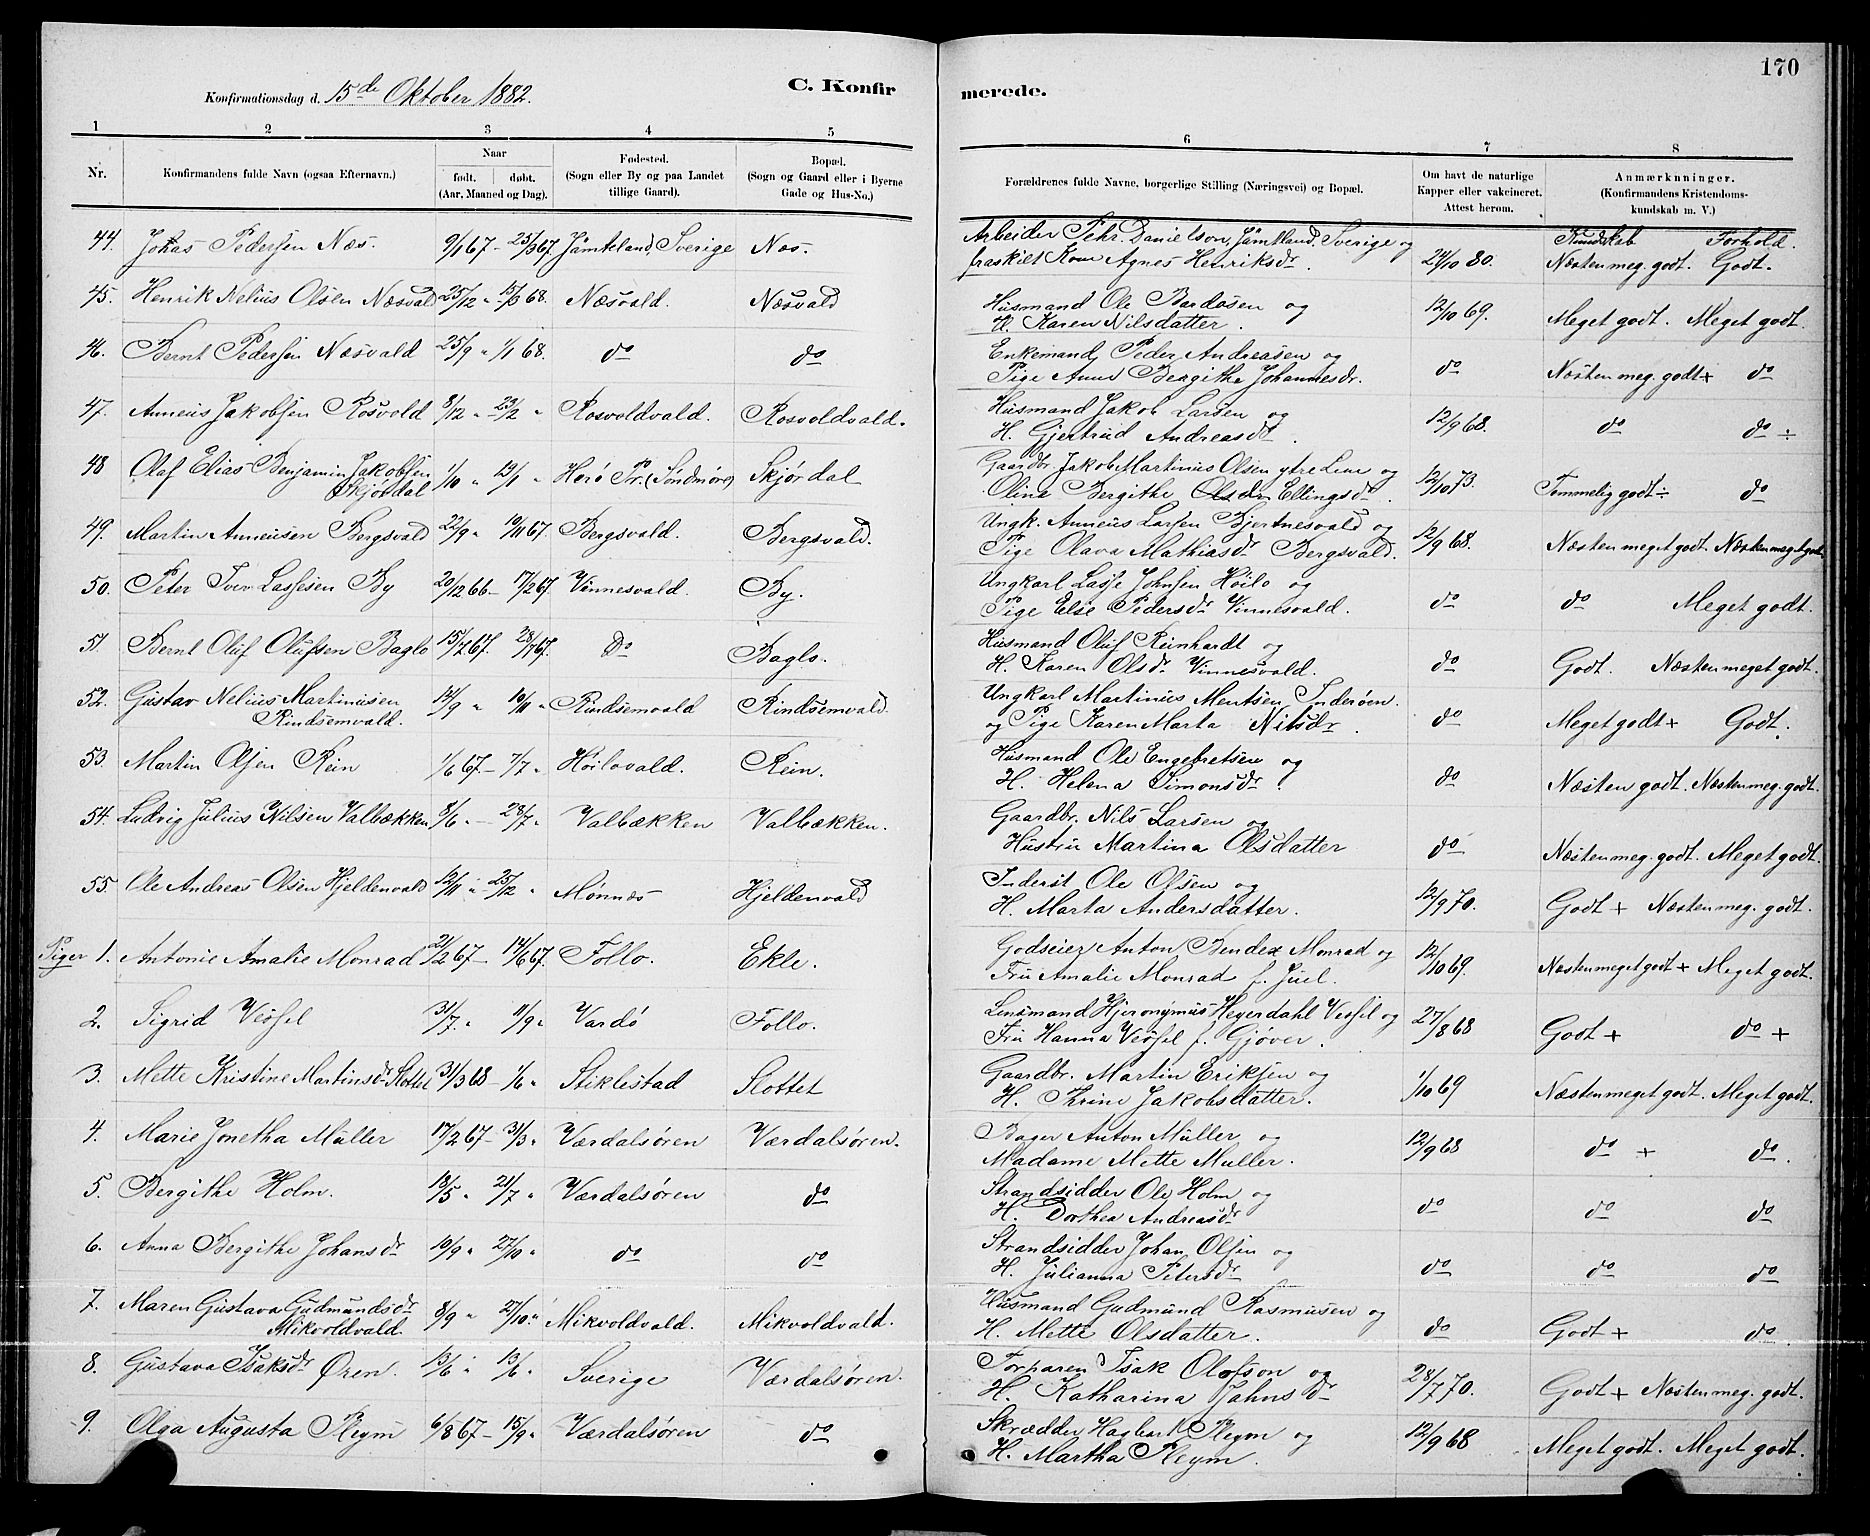 170
Konfirmationsdag d. 15de Oktober 1882.
C. Konfirmerede.
1 2 3 4 5 6 7 8
Nr.
Konfirmandens fulde Navn (ogsaa Efternavn.)
Naar
født. døbt.
(Aar, Maaned og Dag).
Fødested.
(Sogn eller By og paa Landet
tillige Gaard).
Bopæl.
(Sogn og Gaard eller i Byerne
Gade og Hus-No.)
Forældrenes fulde Navne, borgerlige Stilling (Næringsvei) og Bopæl.
Om havt de naturlige
Kopper eller vakcineret.
Attest herom.
Anmærkninger.
(Konfirmandens Kristendoms-
kundskab m. V.)
Kundskab Forhold.
44. Johas Pedersen Næs. 9/1 67 - 25/3 67. Jämteland, Sverige Næs. Arbeider Pehr Danielson, Jämtland, Sverige og
fraskilt Kone Agnes Henriksdr. 24/10 80. Næsten meg. godt. Godt.
45. Henrik Nelius Olsen Næsvald 25/12 " 15/3 68. Næsvald. Næsvald Husmand Ole Bardosen og
H. Karen Nilsdatter. 12/10 69. Meget godt. Meget godt.
46. Bernt Pedersen Næsvald 25/9 " 1/1 68. do do Enkemand Peder Andreasen og
Pige Anne Bergithe Johannesdr. do Næsten meg. godt + do
47. Anneus Jakobsen Rosvold 8/12 " 23/2 " Rosvoldvald. Rosvoldvald. Husmand Jakob Larsen og
H. Gjertrud Andreasdr. 12/9 68. do do ÷
48 Olaf Elias Benjamin Jakobsen
Skjørdal 1/10 " 19/1 " Herö Pr. (Söndmöre) Skjørdal Gaardbr. Jakob Martinus Olsen ytre Leine og
Oline Bergithe Ellingsdr. 12/10 73. Temmelig godt ÷ do
49. Martin Anneusen Bergsvald 22/9 " 10/11 67. Bergsvald. Bergsvald. Ungk. Anneus Larsen Bjertnesvald og
Pige Olava Mathiasdr. Bergsvald. 12/9 68. Næsten meget godt. Næsten meget godt.
50. Peter Iver Lassesen By 20/12 66 - 17/2 67. Vinnesvald. By. Ungkarl Lasse Johnsen Höilo og
Pige Else Pedersdr. Vinnesvald. do do Meget godt.
51. Bernt Oluf Olufsen Baglo 15/7 67. 28/7 67. Do Baglo. Husmand Oluf Reinhardt og
H. Karen Olsdr. Vinnesvald. do Godt. Næsten meget godt.
52. Gustav Nelius Martinusen
Rindsemvald. 14/9 " 10/11 " Rindsemvald Rindsemvald. Ungkarl Martinus Mentsen Inderøen.
og Pige Karen Marta Nilsdr. do Meget godt + Godt.
53. Martin Olsen Rein 1/6 67 - 7/7 " Höilovald. Rein. Husmand Ole Engebretsen og
H. Helena Simonsdr. do Næsten godt. Næsten meg. godt.
54. Ludvig Julius Nilsen Valbækken 8/6 - 28/7 " Valbækken Valbækken. Gaardbr. Nils Larsen og
Hustru Martina Olsdatter do Næsten meg. godt. Meget godt.
55. Ole Andreas Olsen Hjeldenvald 12/11 " 25/12 " Mönnes Hjeldenvald Inderst Ole Olsen og
H. Marta Andersdatter. 12/9 70. Godt + Næsten meg. godt.
Piger 1. Antonie Amalie Monrad 21/2 67 - 14/6 67. Follo. Ekle. Godseier Anton Bendex Monrad og
Fru Amalie Monrad f. Juel. 12/10 69. Næsten meget godt + Meget godt.
2. Sigrid Vessel 31/7. " 11/9 " Vardö Follo. Lensmand Hjeronymus Heyerdahl Vessel og
Fru Hanna Vessel f. Gjøver. 27/8 68 Godt + do +
3. Mette Kristine Martinsdr. Slottet 31/3 68 - 1/6 " Stiklestad Slottet Gaardbr. Martin Eriksen og
H. Thrine Jakobsdatter. 1/10 69 Næsten meget godt. Meget godt.
4. Marie Jonetha Müller 17/2 67 - 31/3 " Værdalsören Værdalsören. Bager Anton Müller og
Madame Mette Muller. 12/9 68 do + do.
5. Bergithe Holm. 18/5 " 21/7 " Værdalsören do Strandsidder Ole Holm og
H. Dorthea Andreasdr. do do do
6. Anna Bergithe Johansdr. 10/9 " 27/10 " do do Strandsidder Johan Olsen og
H. Julianna Petersdr. do do do
7. Maren Gustava Gudmundsdr.
Mikvoldvald. 8/9 " 27/10 " Mikvoldvald. Mikvoldvald. Husmand Gudmund Rasmusen og
H. Mette Olsdatter. do Godt + do.
8. Gustava Isaksdr. Øren. 13/6 " 13/6 " Sverige Værdalsören. Torparen Isak Olofson og
H. Katharina Jahnsdr. 28/7 70. Godt + Næsten meg. godt.
9. Olga Augusta Pleym 6/8 67 - 15/9 " Værdalsören do Skrædder Hagbart Pleym og
H. Martha Pleym. 12/9 68 Meget godt. Meget godt.